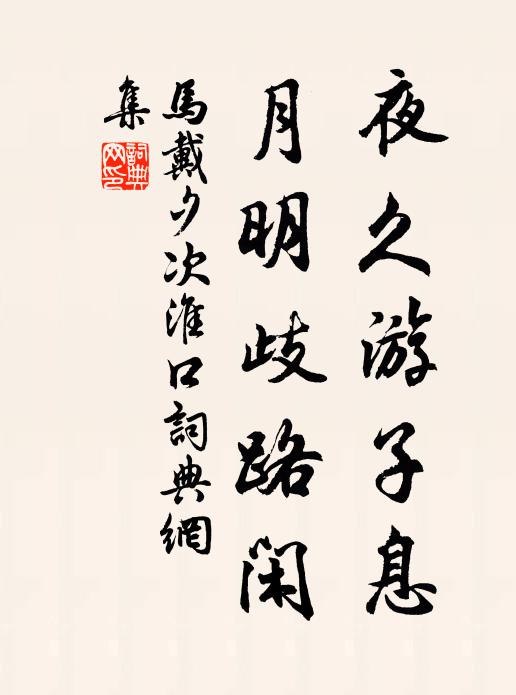 夜久游子息
月明歧路闲
馬戴夕次淮口詞典網
集
詞典
网印